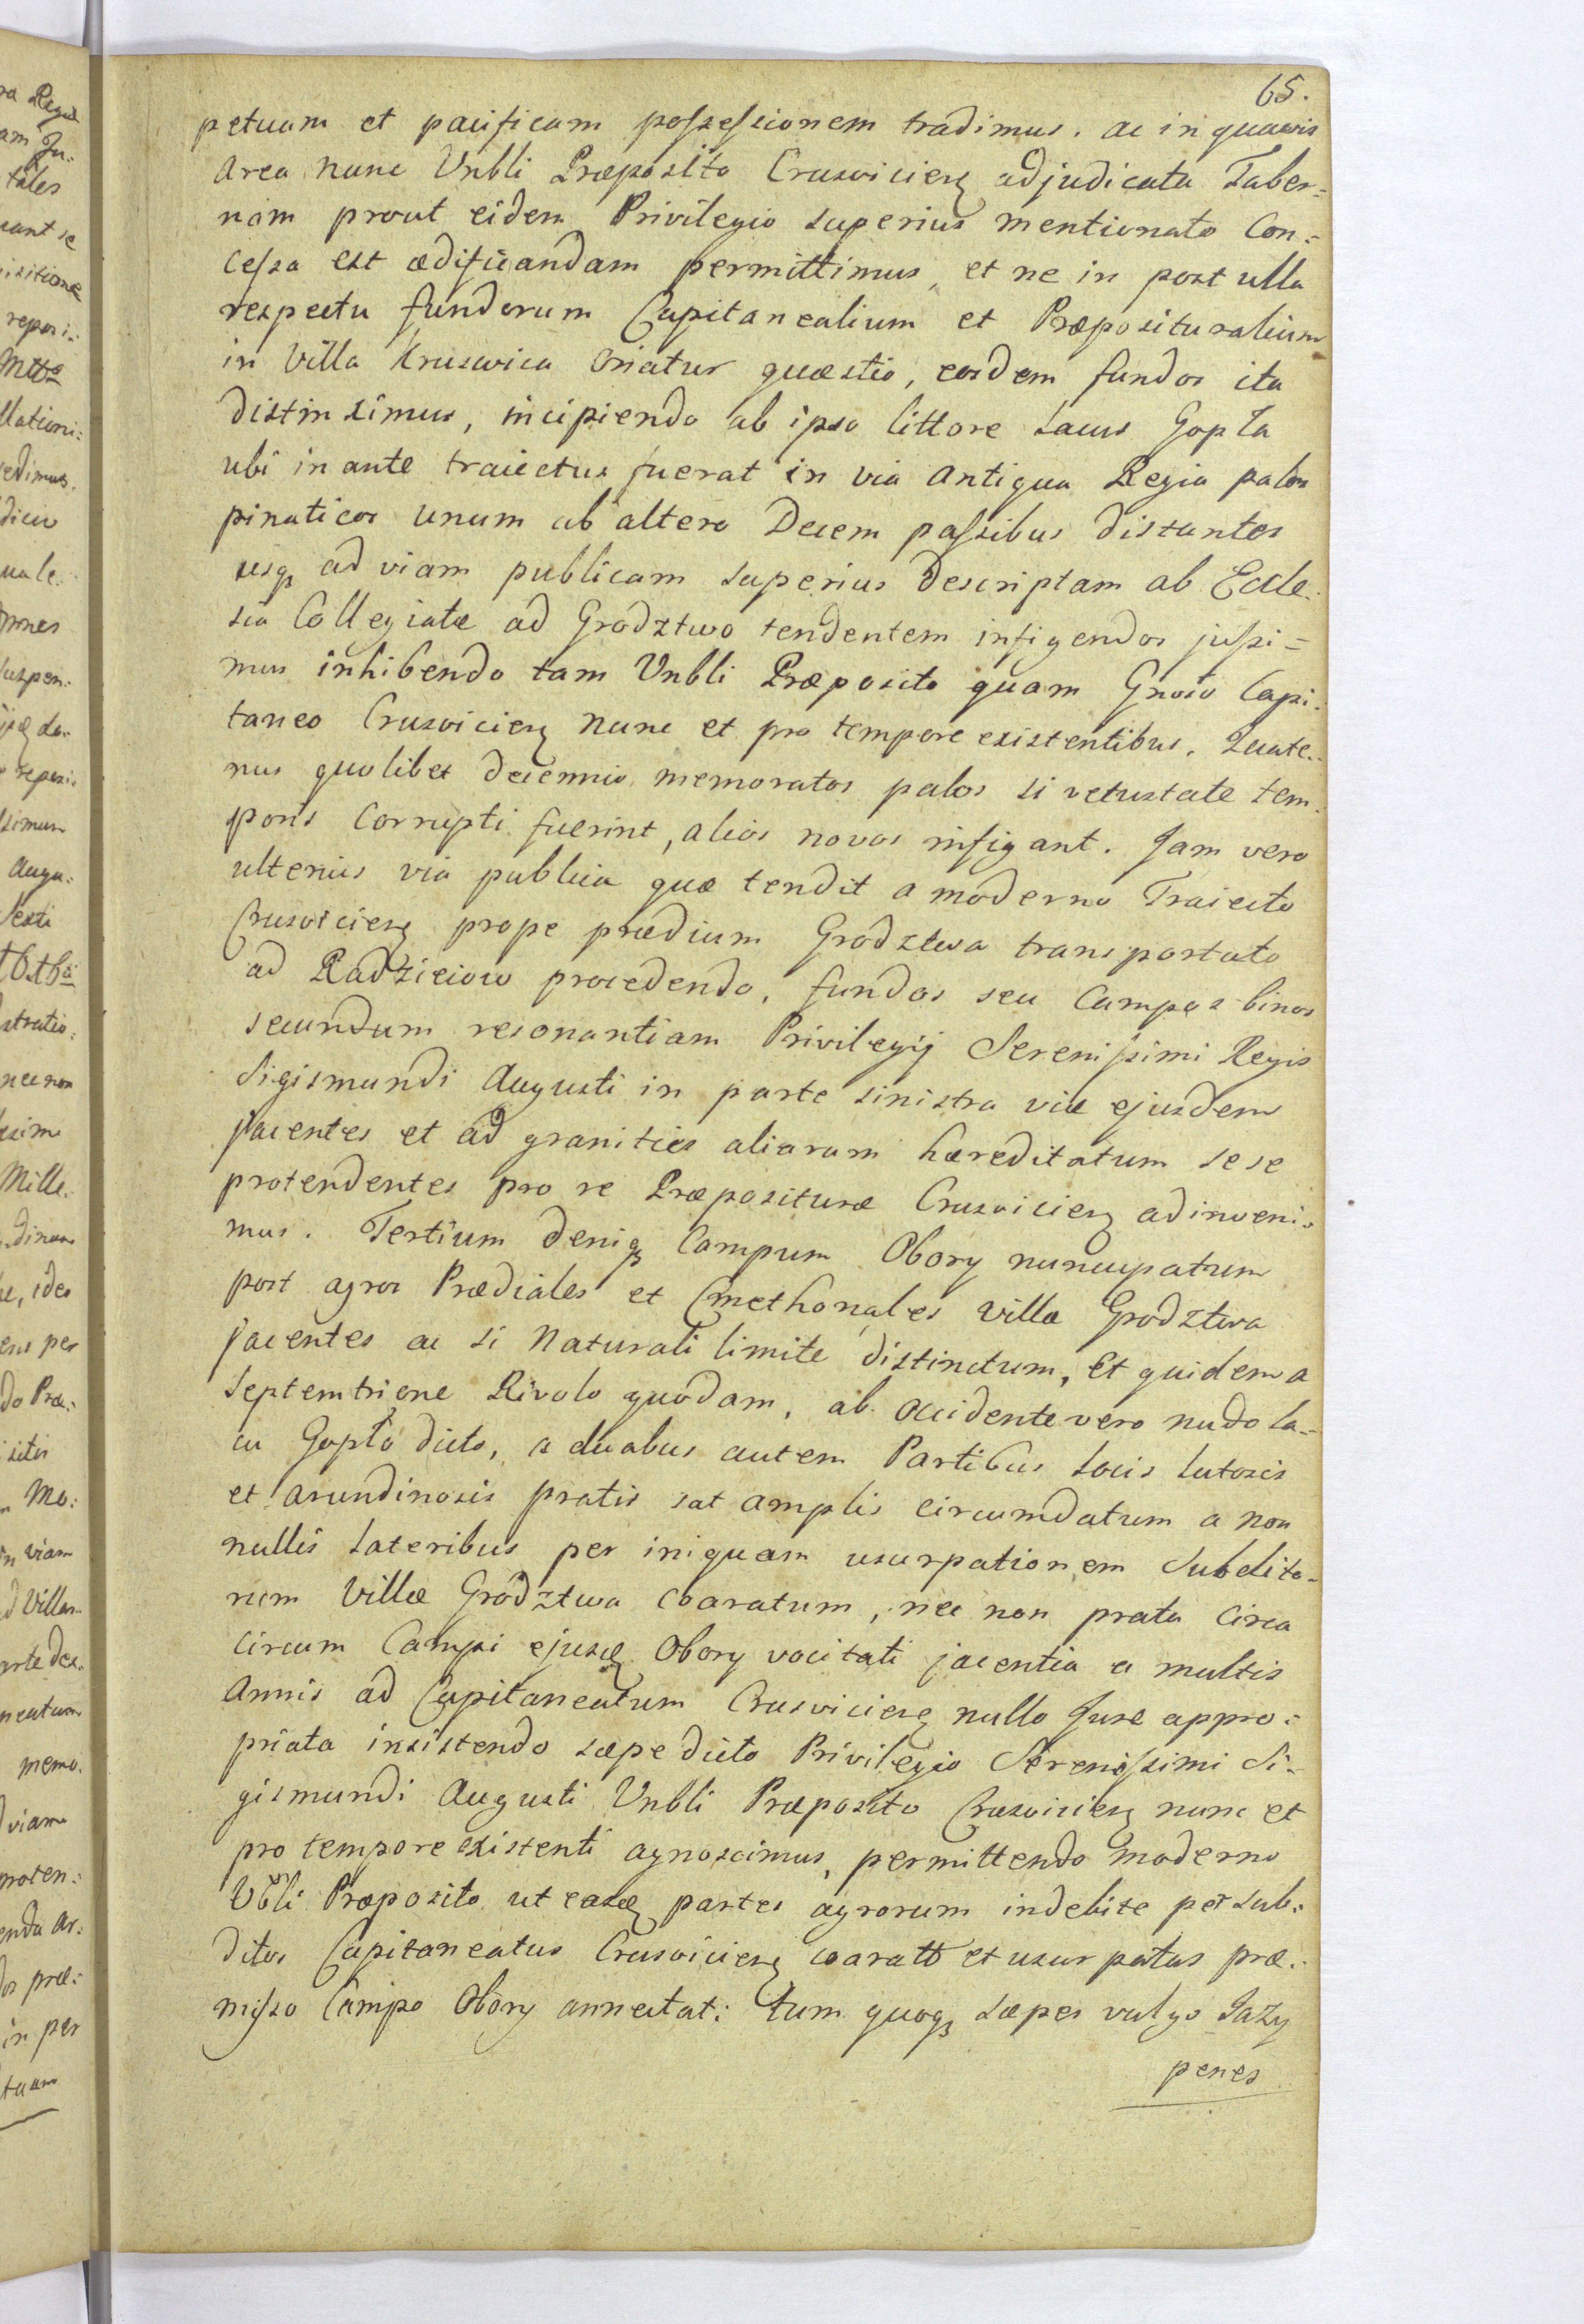 65.
petuam et pacificam possessionem tradimus. ac in quavis
area nunc Vnbli Præposito Crusvicien̄ adjudicata Taber=
nam prout eidem Privilegio superius mentionato Con=
cessa est ædificandam permittimus, et ne in post ulla
respectu fundorum Capitanealium et Præposituralium
in Villa Kruswica oriatur quæstio, eosdem fundos ita
distinximus, incipiendo ab ipso littore Lacus Gopła
ubi in ante traiectus fuerat in via antiqua Regia palos
pinaticos unum ab altero Decem passibus distantes
usq3 ad viam publicam superius Descriptam ab Eccle=
sia Collegiata ad Grodztwo tendentem infigendos jussi=
mus inhibendo tam Vnbli Præposito quam Gnoso Capi=
taneo Crusvicien̄ nunc et pro tempore existentibus. Quate=
nus quolibet decennio memoratos palos si vetustate tem=
poris Corrupti fuerint, alios novos infigant. Jam vero
ulterius via publica quæ tendit a moderno Traiecto
Crusvicien̄ prope prædium Grodztwa transportato
ad Radzieiow procedendo, fundos seu Campos binos
secundum resonantiam Privilegij Serenissimi Regis
Sigismundi Augusti in parte sinistra viæ ejusdem
jacentes et ad granities aliarum hæreditatum sese
protendentes pro re Præpositura Crusvicien̄ adinveni=
mus. Tertium deniq3 Campum Obory nuncupatum
post agros Prædiales et Cmethonales villæ Grodztwa
jacentes ac si Naturali limite distinctum, et quidem a
Septemtrione Rivolo quodam, ab occidente vero nudo la=
cu Gopło dicto, a duabus autem Partibus Locis lutosis
et arundinosis pratis sat amplis circumdatum a non
nullis Lateribus per iniquam usurpationem Subdito=
rum Villæ Grodztwa coaratum, nec non prata Circa
circum Campi ejusd̄ Obory vocitati jacentia a multis
Annis ad Capitaneatum Crusvicien̄ nullo Jure appro=
priata insistendo sæpe dicto Privilegio Serenissimi Si=
gismundi Augusti Vnbli Præposito Crusvicien̄ nunc et
pro tempore existenti agnoscimus, permittendo moderno
Vbli Præposito ut easd̄ partes agrorum indebite per Sub=
ditos Capitaneatus Crusvicien̄ coaratt et usurpatas præ=
misso Campo Obory annectat: tum quoq3 sæpes vulgo Jazy
penes